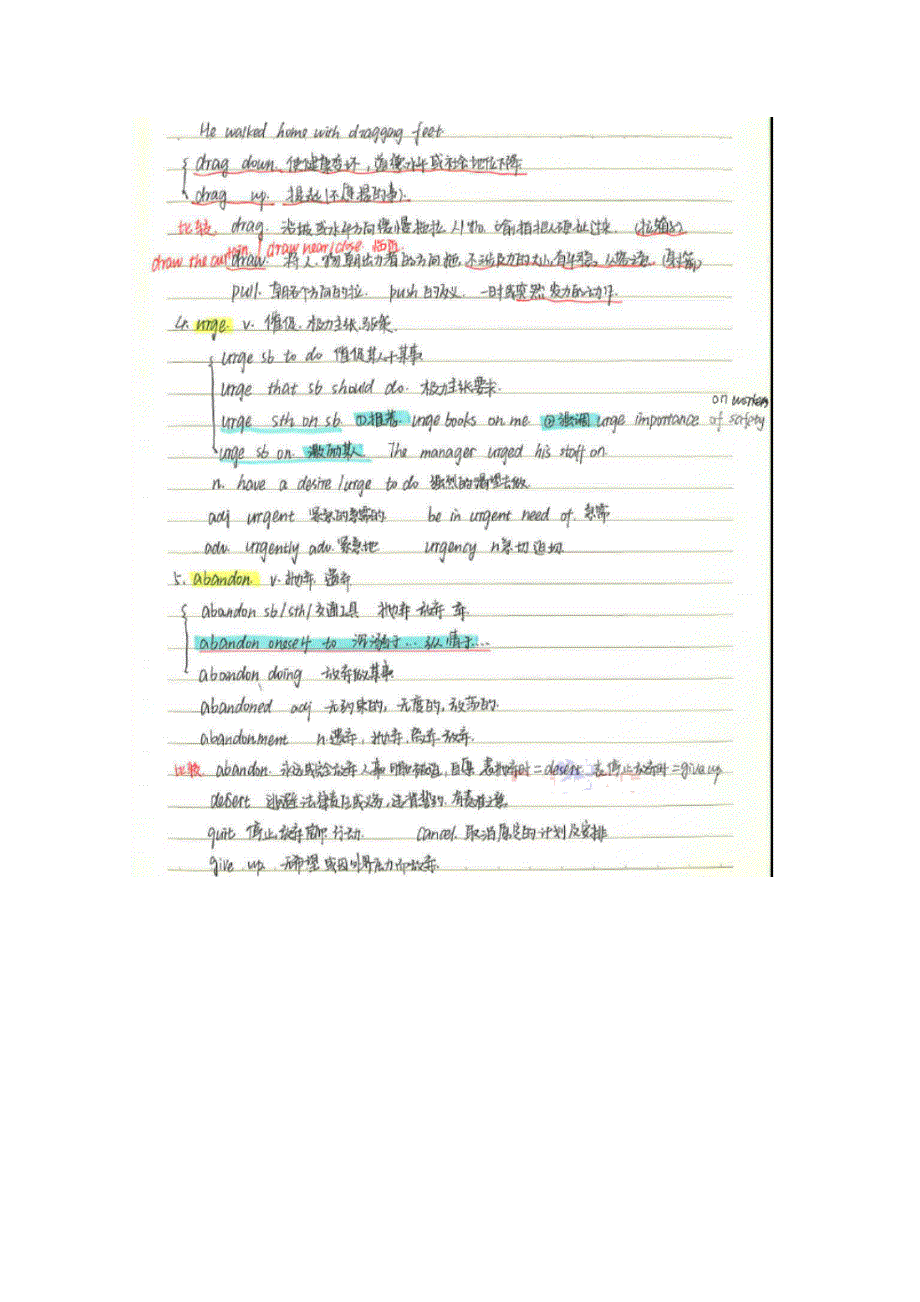 He walked home with dragging feet
drag down. 使健康变坏，道德水平或社会地位下降
drag up. 提起(不愿提的事).
比较. drag. 沿坡或水平方向缓慢拖拉 人/物.
draw the curtain. draw near/close.
draw. 将人、物朝出力者的方向拖,不涉及力的大小,有平稳、从容之意.
pull. 朝各个方向的拉. push 的反义. 一时或突然发力的动作.
4. urge. v. 催促. 极力主张.
urge sb to do 催促某人干某事
urge that sb should do. 极力主张要求.
on workers
urge sth on sb. ①推荐. urge books on me ②强调 urge importance of safety
urge sb on. 激励某人. The manager urged his staff on
n. have a desire/urge to do 强烈的渴望去做
adj urgent 紧急的急需的 be in urgent need of. 急需
adv. urgently adv. 紧急地 urgency n 急切 迫切
5. abandon. v. 抛弃. 遗弃
abandon sb/sth/交通工具 抛弃 放弃 弃
abandon oneself to 沉溺于... 纵情于....
abandon doing 放弃做某事
abandoned adj 无约束的, 无度的, 放荡的.
abandonment n. 遗弃, 抛弃, 离弃. 放弃.
比较. abandon. 永远或完全放弃人事 表抛弃时=desert 表停止放弃时=give up
desert 逃避法律责任或义务, 违背誓约, 有责难之意.
quit 停止, 放弃 行动. cancel. 取消原定的计划及安排
give up. 无希望或因外界压力而放弃.